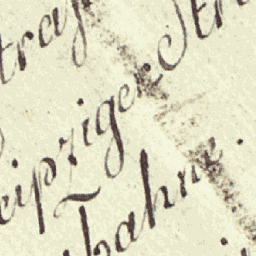 traß
eipziger Str
bahne.